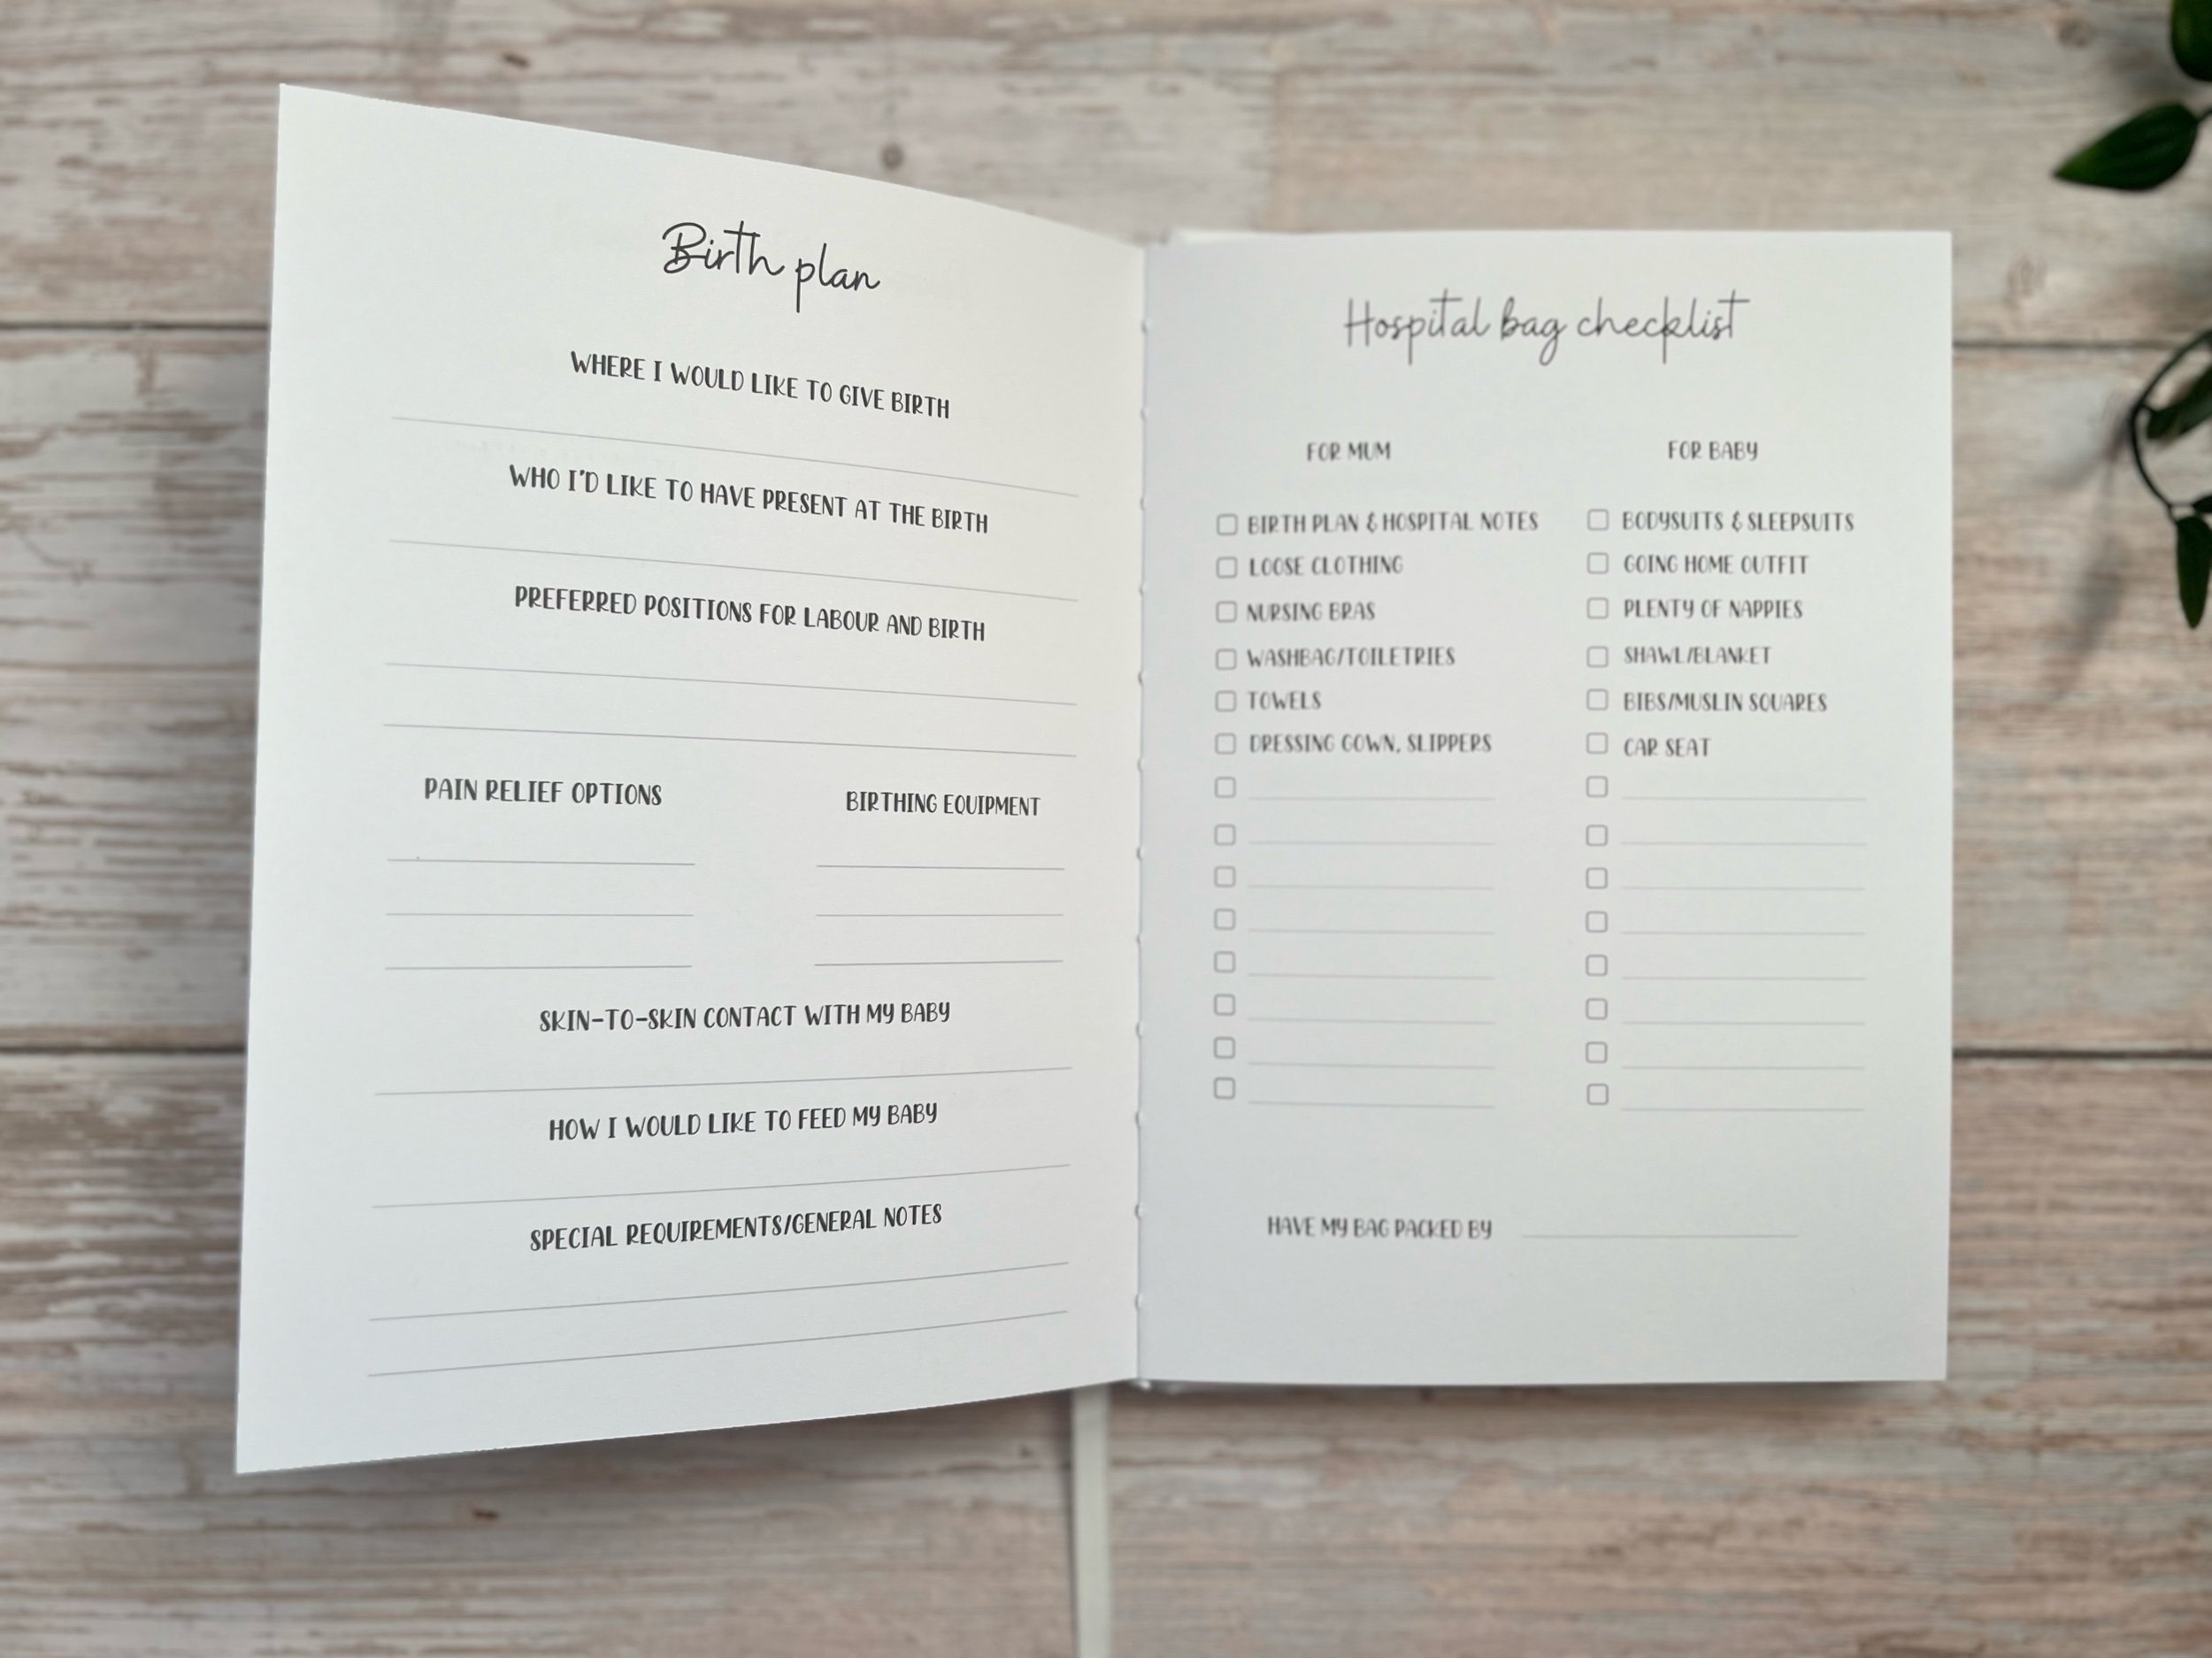 Birth plan
WHERE I WOULD LIKE TO GIVE BIRTH
WHO I'D LIKE TO HAVE PRESENT AT THE BIRTH
PREFERRED POSITIONS FOR LABOUR AND BIRTH
PAIN RELIEF OPTIONS
BIRTHING EQUIPMENT
SKIN-TO-SKIN CONTACT WITH MY BABY
HOW I WOULD LIKE TO FEED MY BABY
SPECIAL REQUIREMENTS/GENERAL NOTES
Hospital bag checklist
FOR MUM
BIRTH PLAN & HOSPITAL NOTES
LOOSE CLOTHING
NURSING BRAS
WASHBAG/TOILETRIES
TOWELS
DRESSING GOWN, SLIPPERS
FOR BABY
BODYSUITS & SLEEPSUITS
GOING HOME OUTFIT
PLENTY OF NAPPIES
SHAWL/BLANKET
BIBS/MUSLIN SQUARES
CAR SEAT
HAVE MY BAG PACKED BY